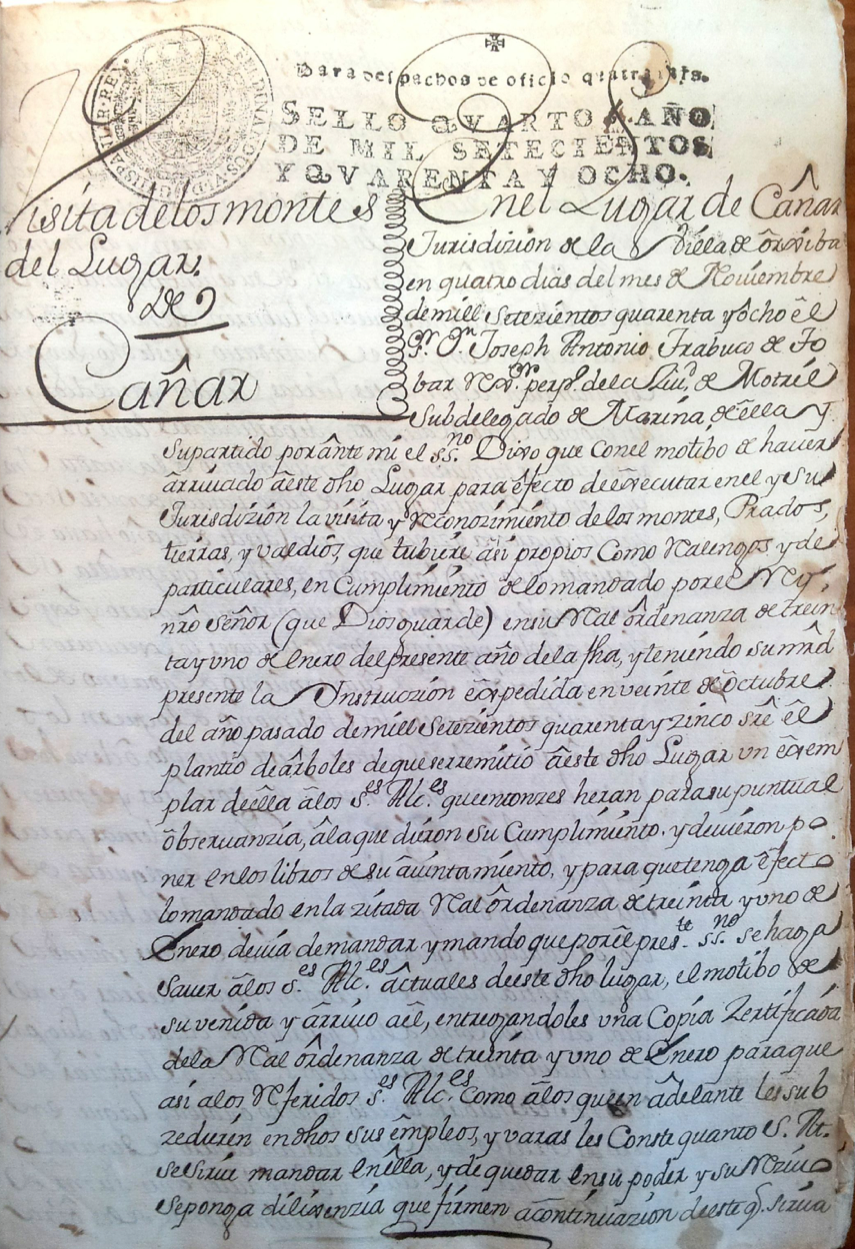 Para despachos de oficio quatro mrs.
SELLO QVARTO, AÑO
DE MIL SETECIENTOS
Y QVARENTA Y OCHO.
Visita de los montes
del Lugar.
De
Cañar
En el Lugar de Cañar
Jurisdizion de la Villa de orxiba
en quatro dias del mes de Noviembre
de mill setezientos quarenta y ocho el
Sr. Dn. Joseph Antonio Trabuco de To
bar Rexor. perpo. de la Ciud. de Motril
Subdelegado de Marina de ella y
su partido por ante mi el ssno. Dixo que con el motibo de haver
arrivado a este dho Lugar para efecto de executar en el y su
Jurisdizion la visita y Reconozimiento de los montes, Prados,
tierras, y valdios, que tubiere asi propios Como Realengos, y de
particulares, en Cumplimiento de lo mandado por el Rey,
nro Señor (que Dios guarde) en su Real ordenanza de trein
ta y uno de Enero del presente año de la fha, y teniendo su mrd
presente la Instruczion expedida en veinte de octubre
del año pasado de mill setezientos quarenta y zinco sre el
plantio de arboles de que se rremitio a este dho Lugar un exem
plar de ella a los ses. Alces. que entonzes heran para su puntual
observanzia, a la que dieron su Cumplimiento. y devieron po
ner en los libros de su aiuntamiento, y para que tenga efecto
lo mandado en la zitada Real ordenanza de treinta y uno de
Enero devia de mandar y mando que por el preste. ssno. se haga
saver a los ses. Alces. actuales de este dho lugar, el motibo de
su venida y arrivo a el, entregandoles una Copia Zertificada
de la Real ordenanza de treinta y uno de Enero para que
asi a los Referidos ses. Alces. Como a los que en adelante les sub
zedieren en dhos sus empleos, y varas les Conste quanto S. Rt.
se sirve mandar en ella, y de quedar en su poder y su Rezivo
se ponga dilixenzia que firmen a continuazion de este q. sirva